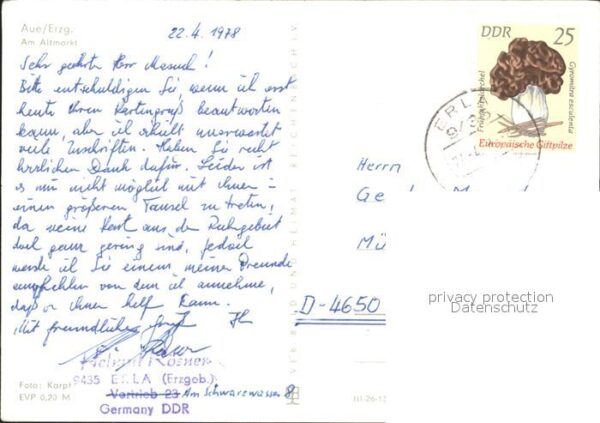 Aue/Erzg.
Am Altmarkt
22.4.1978
Sehr geehrter Herr
Bitte entschuldigen Sie, wenn ich erst
heute Ihren Kartengruß beantworten
kann, aber ich erhielt unerwartet
viele Zuschriften. Haben Sie recht
herzlichen Dank dafür. Leider ist
es mir nicht möglich mit Ihnen in
einen größeren Tausch zu treten,
da meine Karten aus der Ruhrgebiet
doch ganz gering sind, jedoch
werde ich Sie einem meiner Freunde
empfehlen von dem ich annehme,
daß er Ihnen helfen kann.
Mit freundlichem Gruß Ihr
Helmut Rösner
9435 ERLA (Erzgeb.)
Vertrieb 23 Am Schwarzwasser 8
Germany DDR
Foto: Karpf
EVP 0,20 M
DDR 25
Frühjahrslorchel
Gyromitra esculenta
Europäische Giftpilze
ERLA
Herrn
Ge
Mü
D-4650
privacy protection
Datenschutz